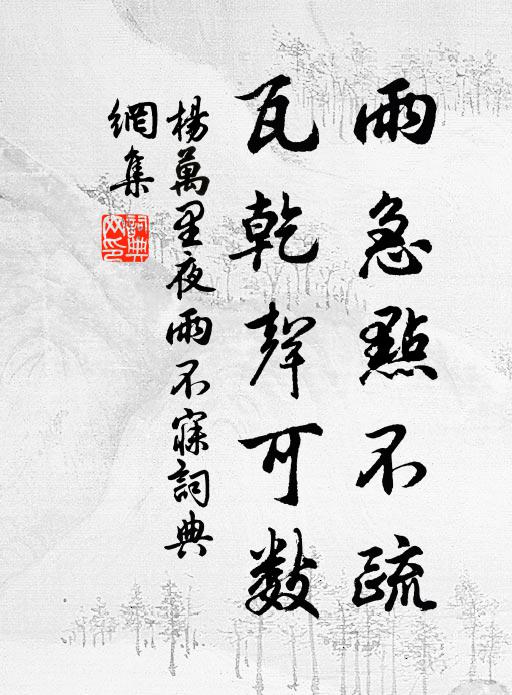 雨急點不疏
瓦乾聲可數
楊萬里夜雨不寐詞典
網集
詞典
网印